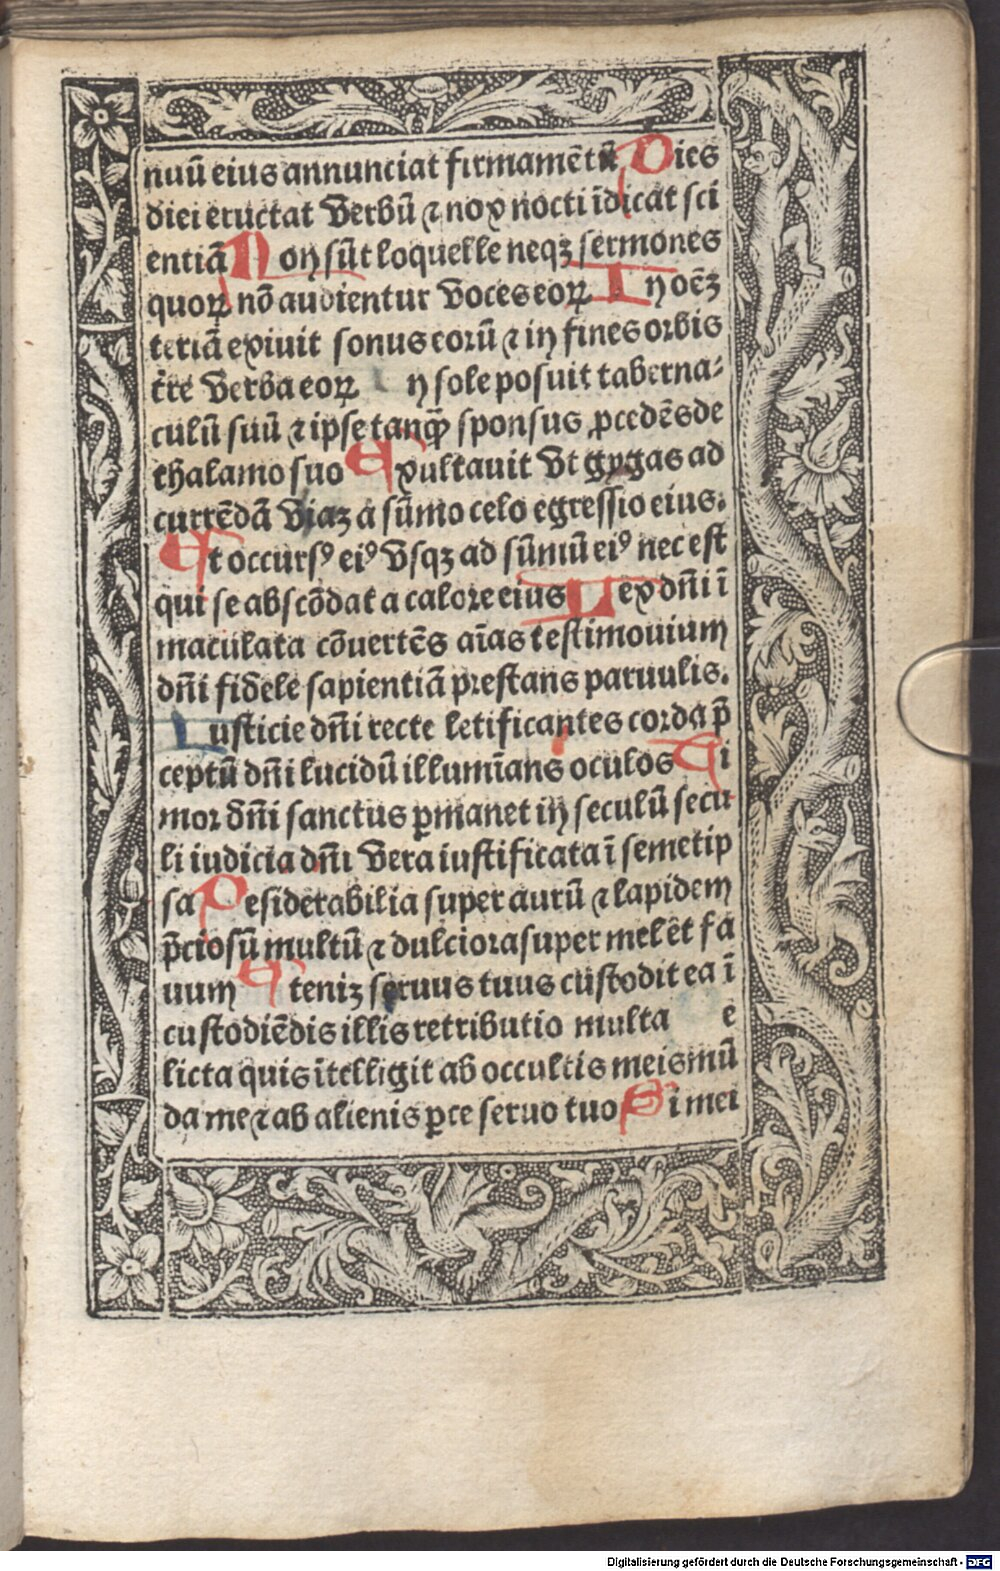 nuū eius annunciat firmamētū Dies
diei eructat verbū ⁊ nox nocti īdicat sci
entiā Non sūt loquelle neqꝫ sermones
quoꝝ nō audientur voces eoꝝ In oēꝫ
terrā exiuit sonus eorū ⁊ in fines orbis
tr̄re verba eoꝝ I n sole posuit taberna⸗
culū suū ⁊ ipse tanqͣꝫ sponsus ꝓcedēs de
thalamo suo Exultauit vt gygas ad
currēdā viaꝫ a sūmo celo egressio eius.
Et occursꝰ eiꝰ vsqꝫ ad sūmū eiꝰ nec est
qui se abscōdat a calore eius Lex dn̄i ī
maculata cōuertēs aīas testimouium
dn̄i fidele sapientiā prestans paruulis.
Iusticie dn̄i recte letificantes corda p̄
ceptū dn̄i lucidū illumīans oculos Ti
mor dn̄i sanctus ꝑmanet in seculū secu
li iudicia dn̄i vera iustificata ī semetip
sa Desiderabilia super aurū ⁊ lapidem
p̄ciosū multū ⁊ dulciora super mel ēt fa
uum Eteniꝫ seruus tuus custodit ea ī
custodiēdis illis retributio multa e
licta quis ītelligit ab occultis meis mū
da me ⁊ ab alienis ꝑce seruo tuo Si mei
Digitalisierung gefördert durch die Deutsche Forschungsgemeinschaft - DFG